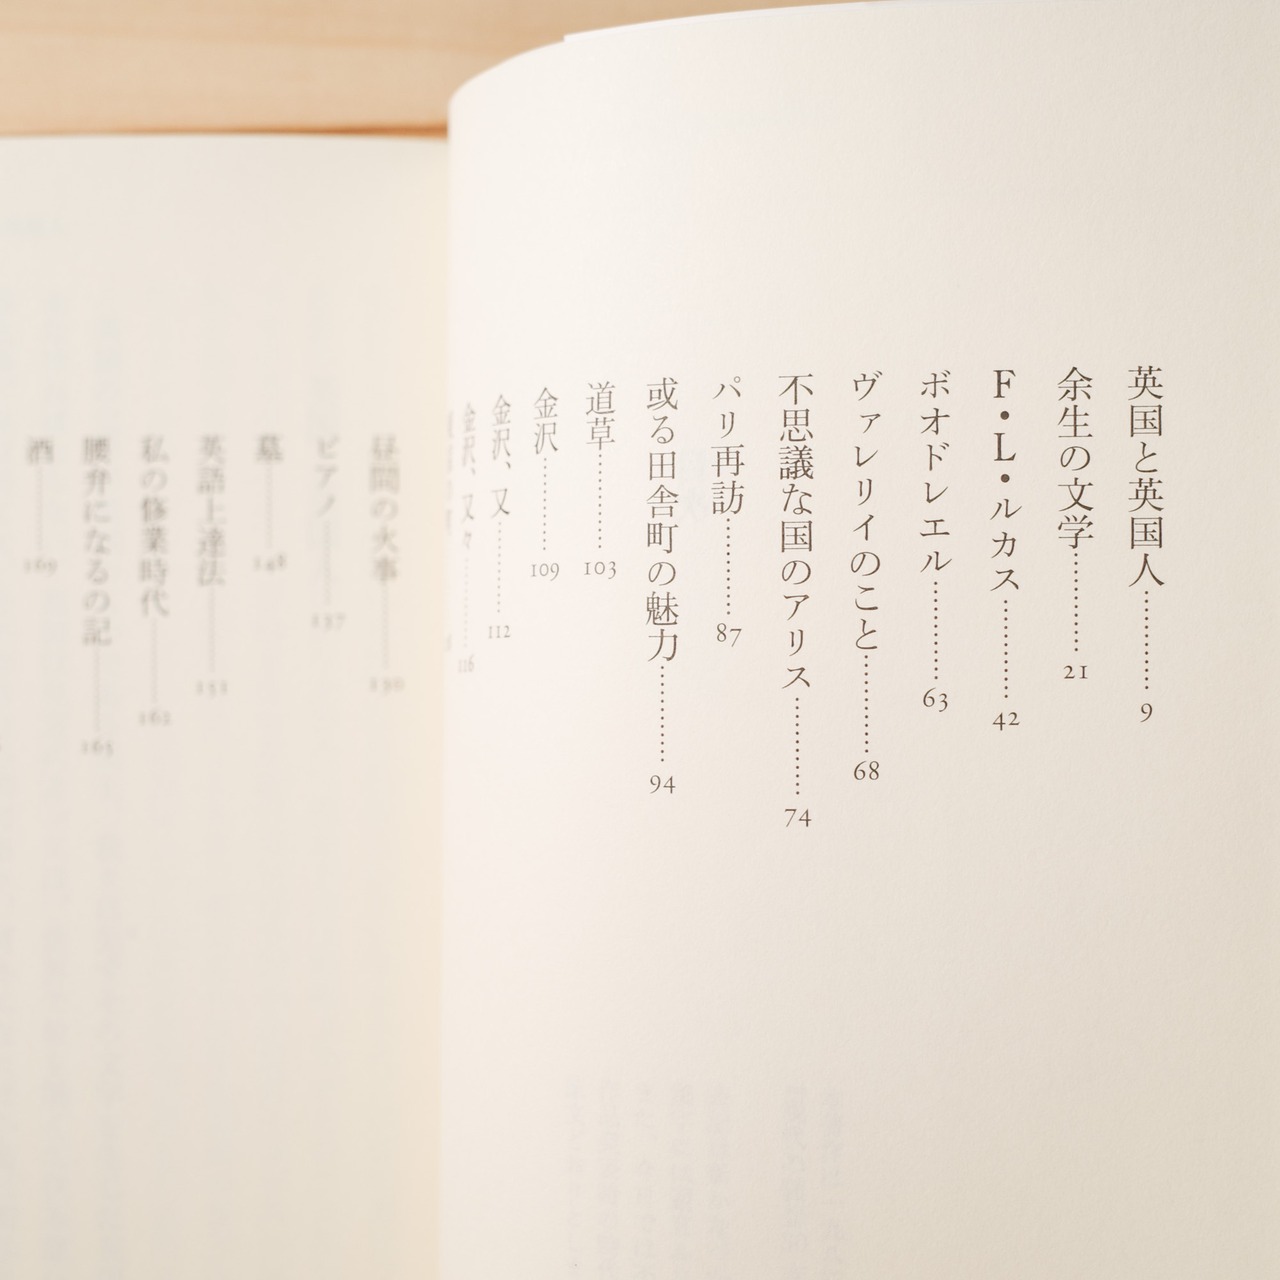 英国と英国人…………9
余生の文学…………21
F・L・ルカス…………42
ボオドレエル…………63
ヴァレリイのこと…………68
不思議な国のアリス…………74
パリ再訪…………87
或る田舎町の魅力…………94
道草…………103
金沢…………109
金沢、又…………112
金沢、又々…………116
昼間の火事…………130
ピアノ…………137
墓…………148
英語上達法…………151
私の修業時代…………162
腰弁になるの記…………165
酒…………169